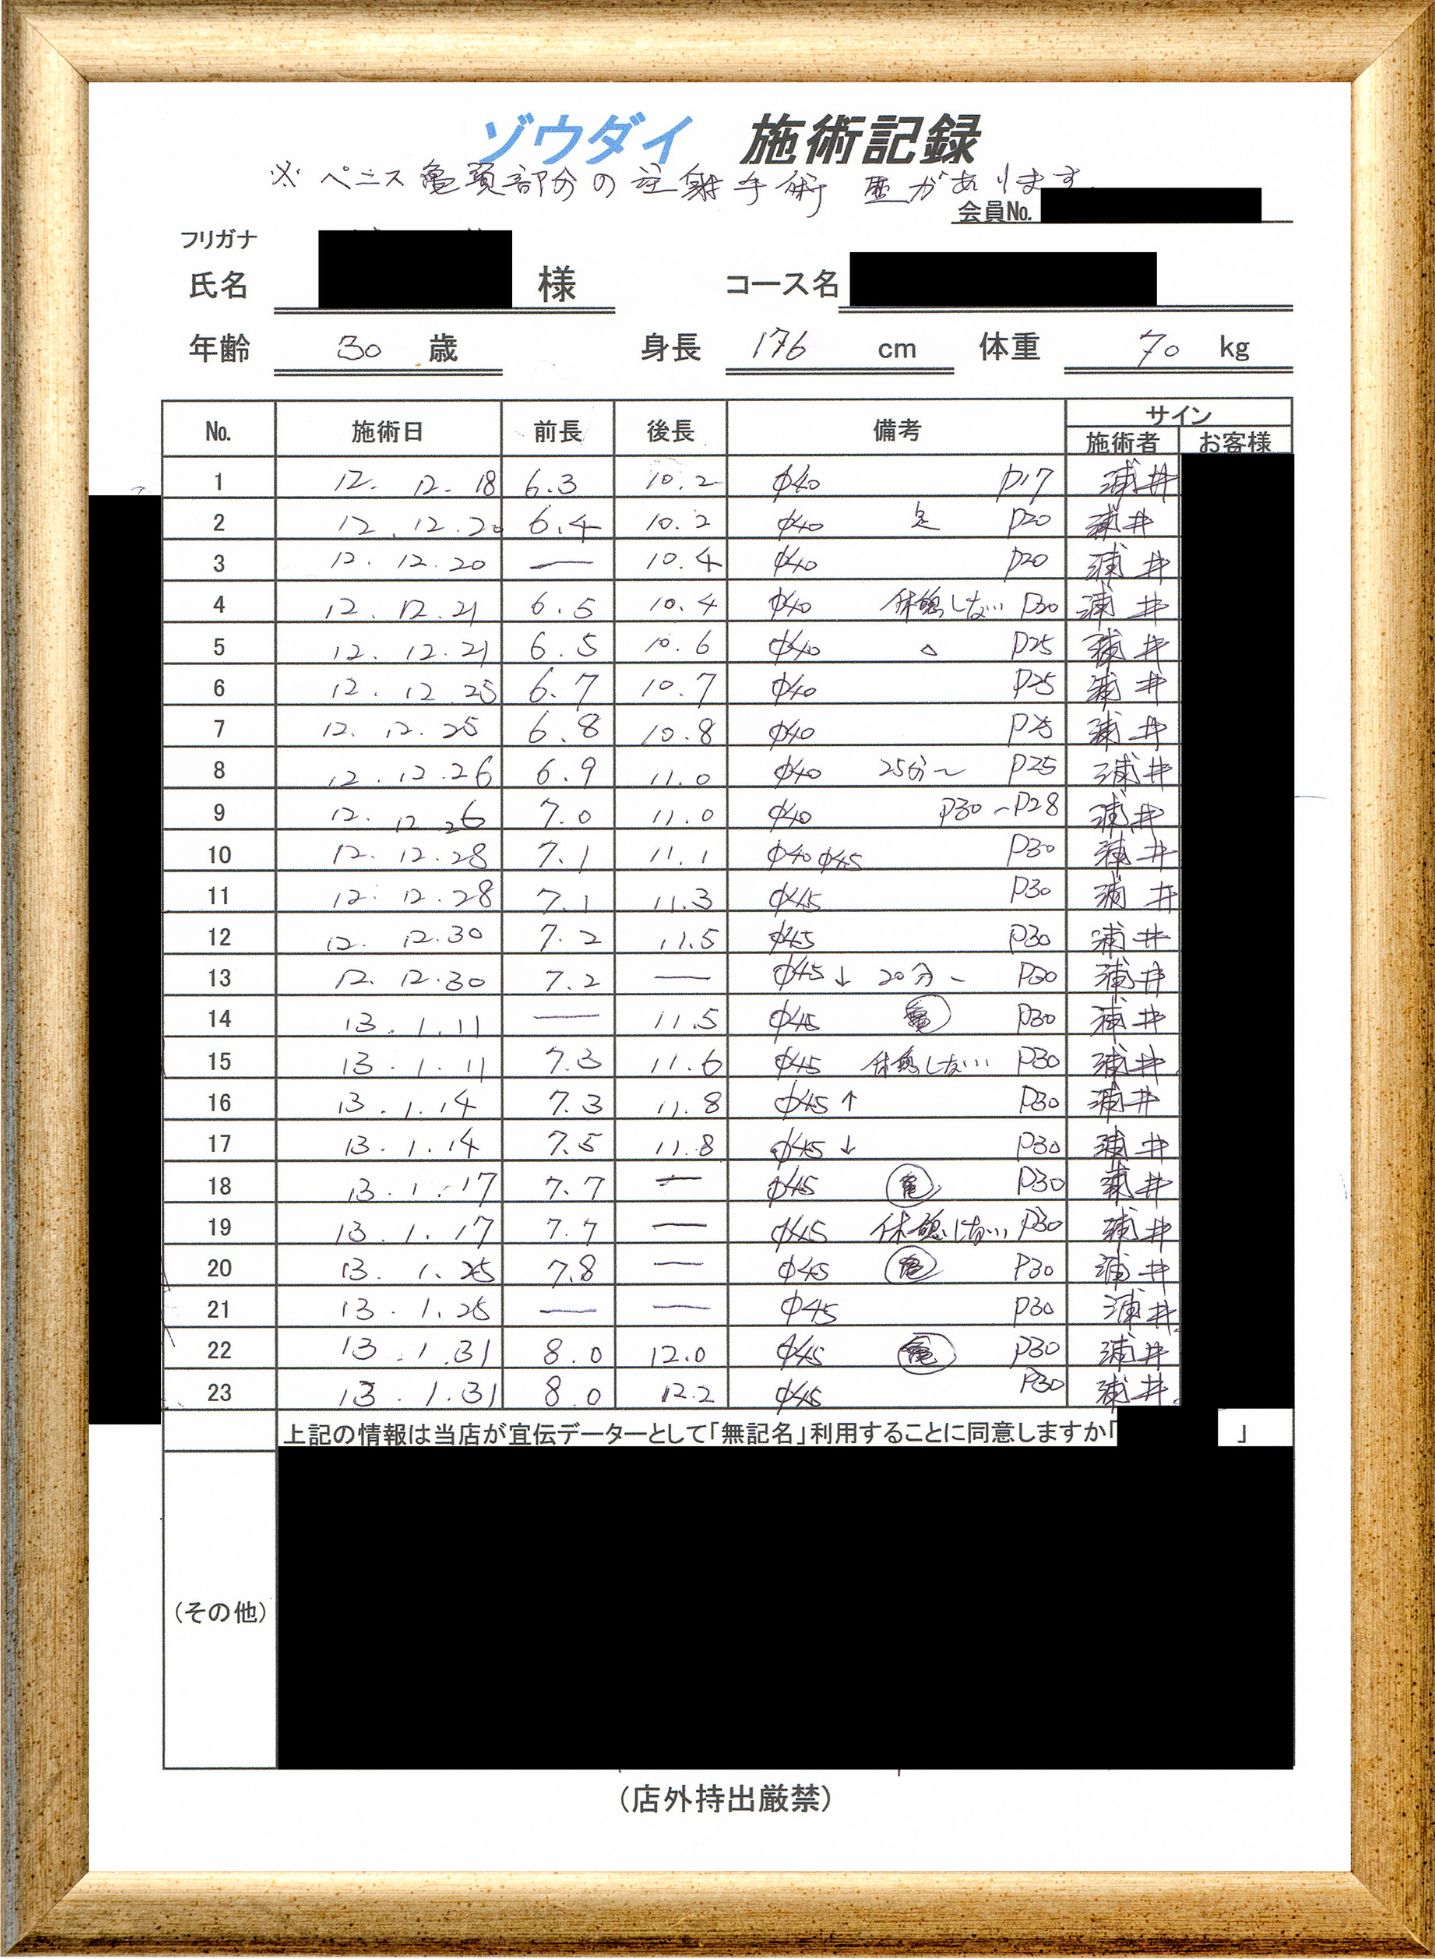 ゾウダイ 施術記録
※ ペニス亀頭部分の注射手術 歴があります
会員No.
フリガナ
氏名 様 コース名
年齢 30 歳 身長 176 cm 体重 70 kg
No. 施術日 前長 後長 備考 サイン
施術者 お客様
1 12. 12. 18 6.3 10.2 φ40 P17 浦井
2 12. 12. 20 6.4 10.2 φ40 P20 浦井
3 12. 12. 20 — 10.4 φ40 P20 浦井
4 12. 12. 21 6.5 10.4 φ40 休憩しない P30 浦井
5 12. 12. 21 6.5 10.6 φ40 △ P25 浦井
6 12. 12 25 6.7 10.7 φ40 P25 浦井
7 12. 12. 25 6.8 10.8 φ40 P25 浦井
8 12. 12. 26 6.9 11.0 φ40 25分〜 P25 浦井
9 12. 12 26 7.0 11.0 φ40 P30〜P28 浦井
10 12. 12. 28 7.1 11.1 φ40 φ45 P30 浦井
11 12. 12. 28 7.1 11.3 φ45 P30 浦井
12 12. 12. 30 7.2 11.5 φ45 P30 浦井
13 12. 12. 30 7.2 — φ45↓ 20分〜 P30 浦井
14 13. 1. 11 — 11.5 φ45 亀 P30 浦井
15 13. 1. 11 7.3 11.6 φ45 休憩しない P30 浦井
16 13. 1. 14 7.3 11.8 φ45↑ P30 浦井
17 13. 1. 14 7.5 11.8 φ45↓ P30 浦井
18 13. 1. 17 7.7 — φ45 亀 P30 浦井
19 13. 1. 17 7.7 — φ45 休憩しない P30 浦井
20 13. 1. 25 7.8 — φ45 亀 P30 浦井
21 13. 1. 25 — — φ45 P30 浦井
22 13. 1. 31 8.0 12.0 φ45 亀 P30 浦井
23 13. 1. 31 8.0 12.2 φ45 P30 浦井
上記の情報は当店が宣伝データーとして「無記名」利用することに同意しますか「 」
(その他)
(店外持出厳禁)